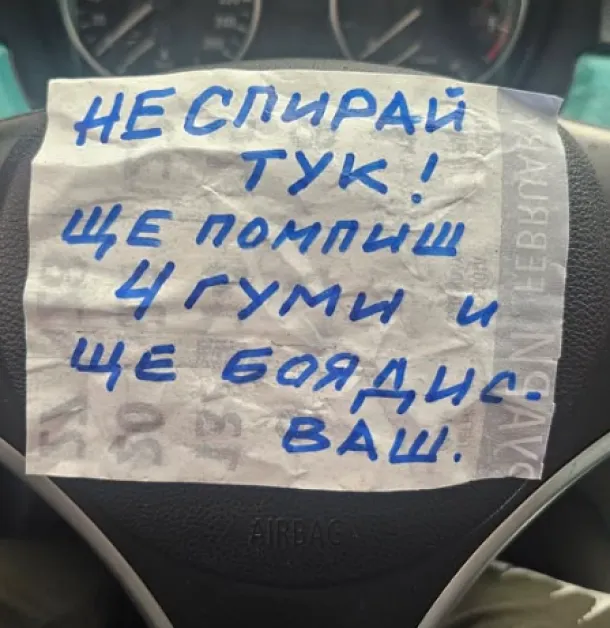 НЕ СПИРАЙ
ТУК!
ЩЕ ПОМПИШ
4 ГУМИ И
ЩЕ БОЯДИС-
ВАШ.
AIRBAG